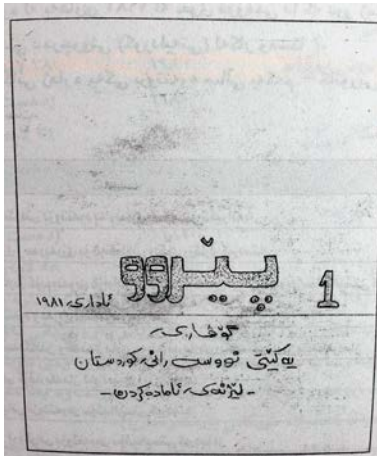 پێڕوو 1
ئاداری ١٩٨١
گۆڤاری
یەکێتی نووسەرانی کوردستان
- لیژنەی ئامادەکردن -